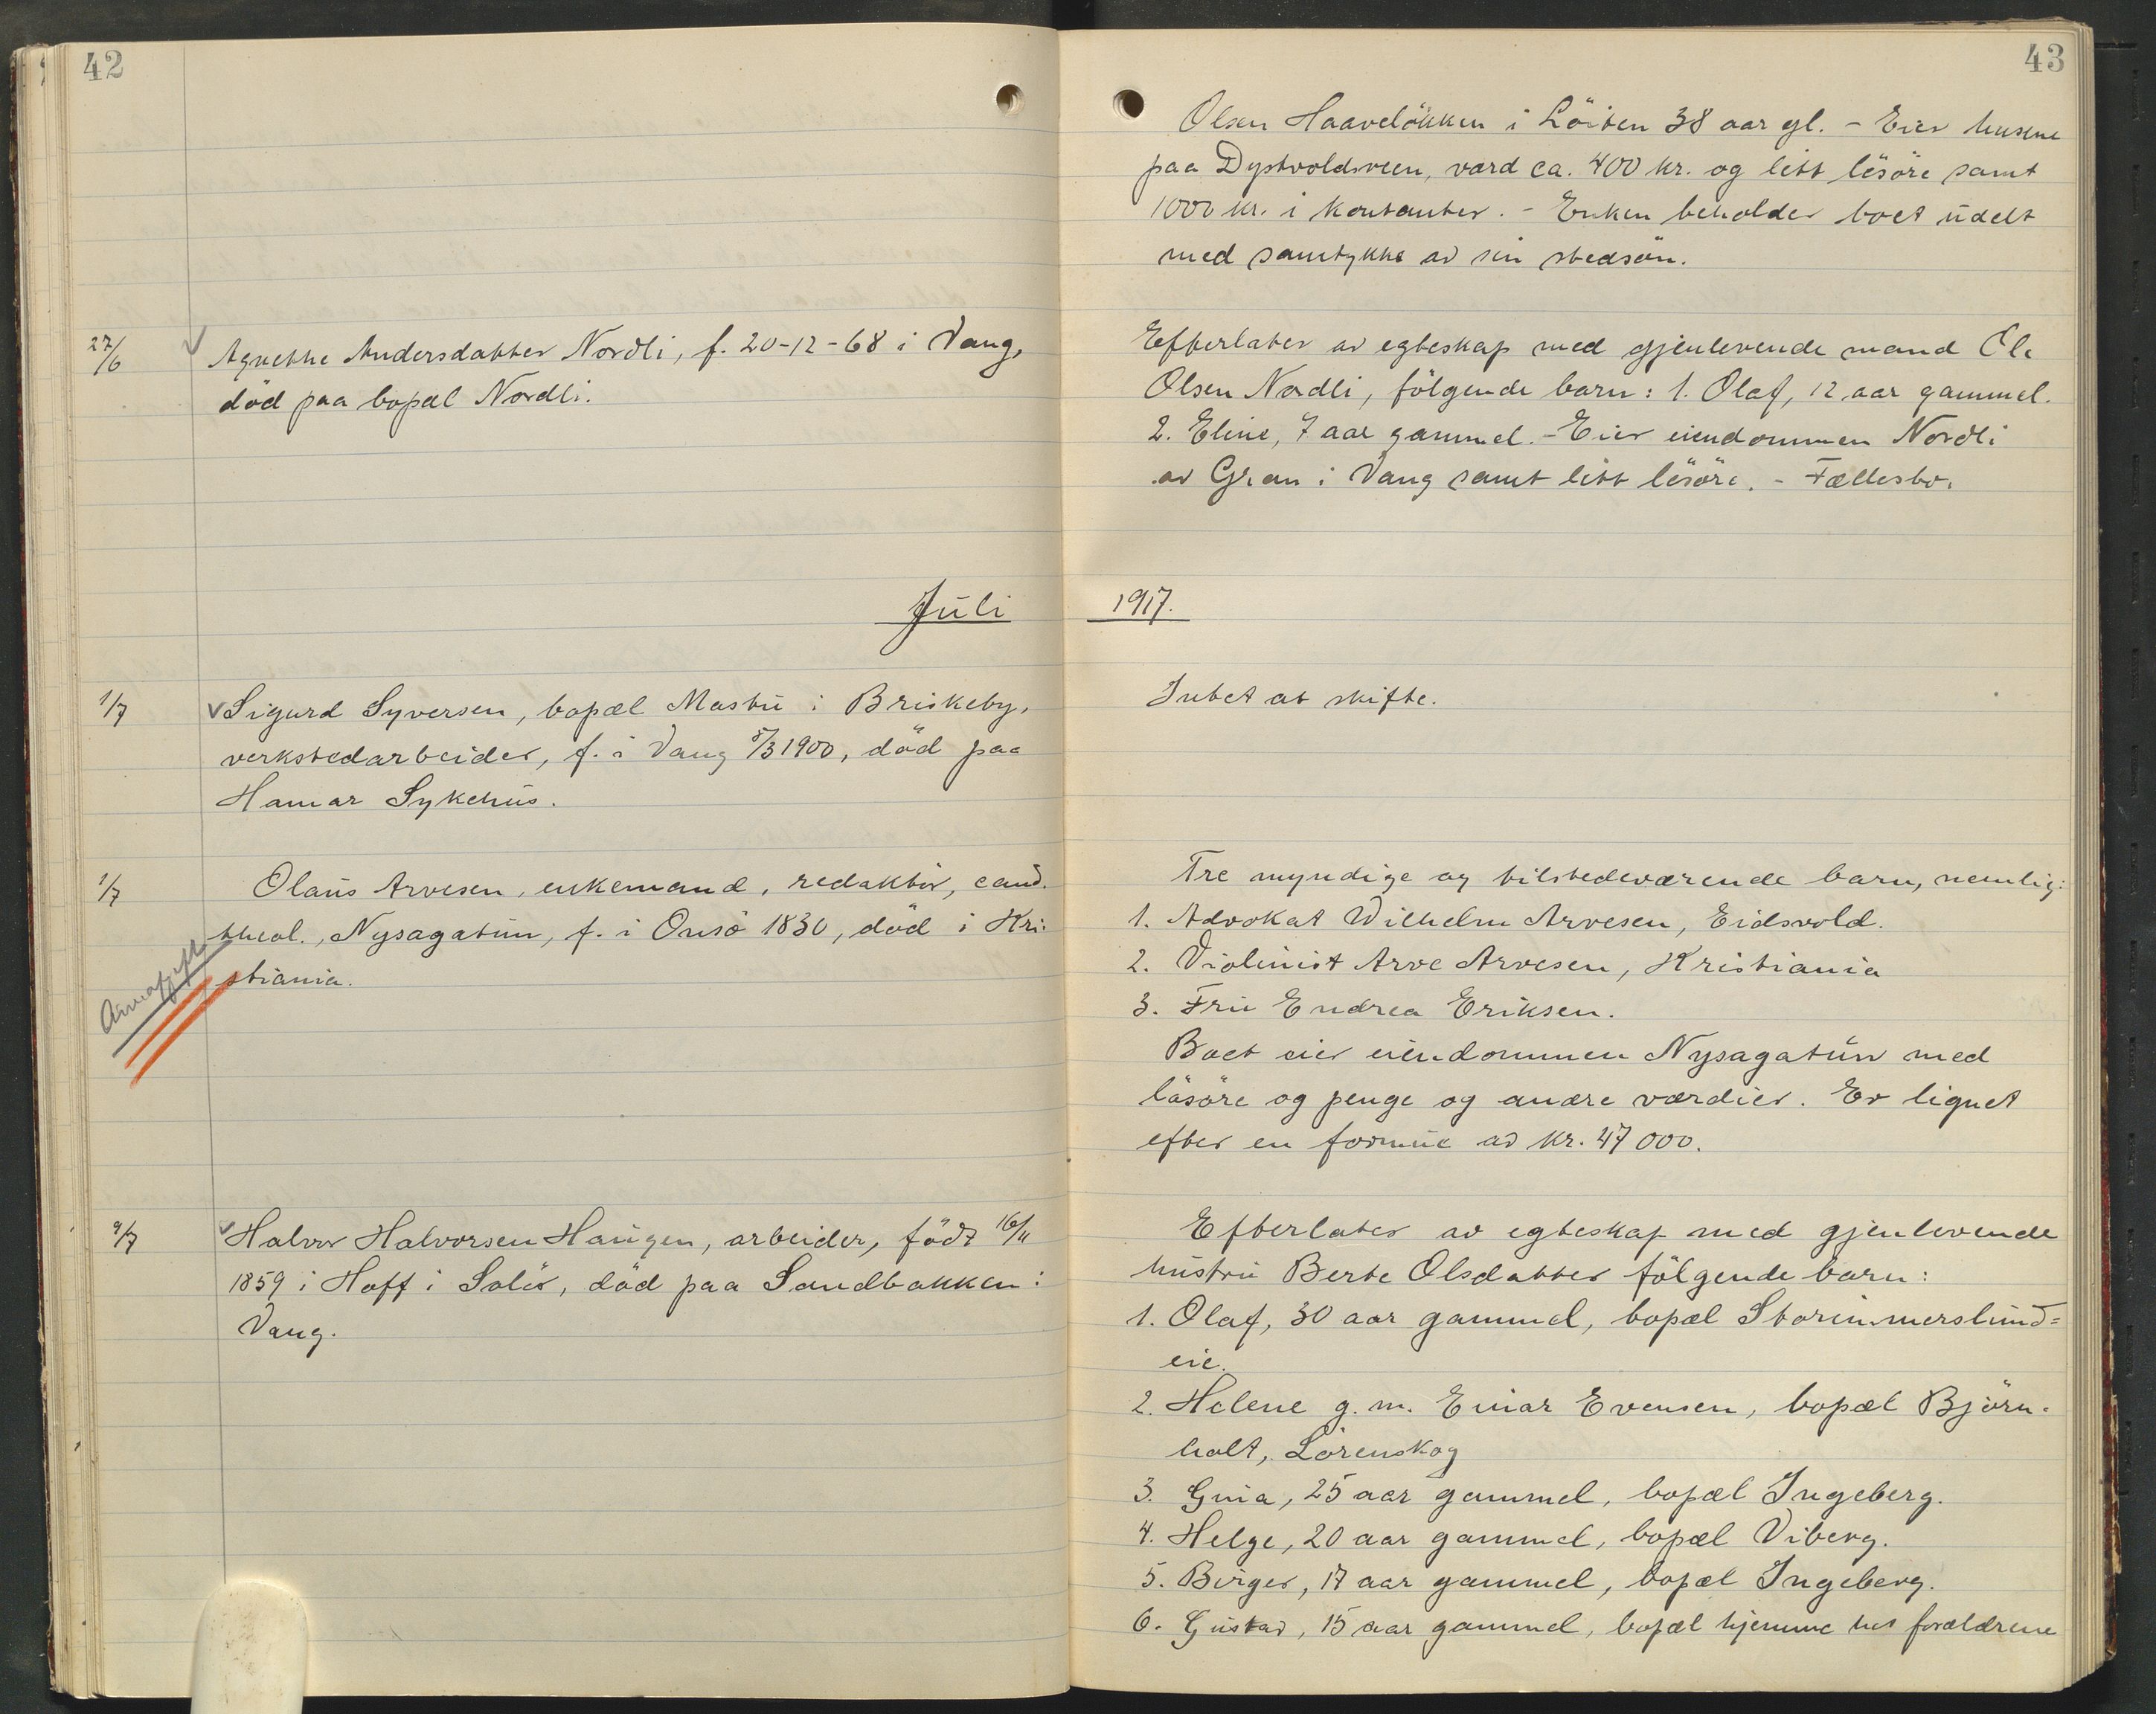 42
27/6 Agnethe Andersdatter Nordli, f. 20-12-68 i Vang,
död paa bopæl Nordli.
Juli
1/7 Sigurd Syversen, bopæl Mastu i Briskeby,
verkstedarbeider, f. i Vang 5/3 1900, död paa
Hamar Sykehus.
1/7 Olaus Arvesen, enkemand, redaktör, cand.
theol., Nysagatun, f. i Onsö 1830, död i Kri-
stiania.
9/7 Halvor Halvorsen Haugen, arbeider, född 16/11
1859 i Hoff i Solör, död paa Sandbakken i
Vang.
43
Olsen Haavelökken i Löiten 38 aar gl. - Eier husene
paa Dystvoldsveen, værd ca. 400 kr. og litt lösöre samt
1000 kr. i kontanter. - Enken beholder boet udelt
med samtykke av sin stedsön.
Efterlater av egteskap med gjenlevende mand Ole
Olsen Nordli, fölgende barn: 1. Olaf, 12 aar gammel.
2. Eline, 7 aar gammel. - Eier eiendommen Nordli
av Gran i Vang samt litt lösöre. - Fællesbo.
1917.
Intet at skifte.
Tre myndige og tilstedeværende barn, nemlig:
1. Advokat Wilhelm Arvesen, Eidsvold.
2. Violinist Arve Arvesen, Kristiania
3. Fru Endrea Eriksen.
Boet eier eiendommen Nysagatun med
lösöre og penge og andre værdier. Er lignet
efter en formue av kr. 47 000.
Efterlater av egteskap med gjenlevende
hustru Berte Olsdatter fölgende barn:
1. Olaf, 30 aar gammel, bopæl Storimmerslund=
eie.
2. Helene g. m. Einar Evensen, bopæl Björn-
holt, Lörenskog
3. Gina, 25 aar gammel, bopæl Ingeberg.
4. Helge, 20 aar gammel, bopæl Viberg.
5. Birger, 17 aar gammel, bopæl Ingeberg.
6. Gustav, 15 aar gammel, bopæl hjemme hos forældrene